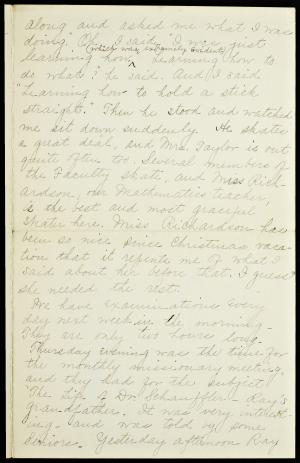 along and asked me what I was
doing. "Oh, I said, "I was just
(which was extremely evident)
learning how." "Learning how to
do what?" he said. And I said
"Learning how to hold a stick
straight." Then he stood and watched
me sit down suddenly. He skates
a great deal, and Mrs. Taylor is out
quite often too. Several members of
the Faculty skate, and Miss Rich-
ardson, our Mathematics teacher,
is the best and most graceful
skater here. Miss Richardson has
been so nice since Christmas vaca-
tion that it repents me of what I
said about her before that. I guess
she needed the rest.
We have examinations every
day next week in the morning.
They are only two hours long.
Thursday evening was the time for
the monthly missionary meeting,
and they had for the subject
"The Life of Dr. Schauffler - Ray's
grandfather. It was very interest-
ing - and was told by some
Seniors. Yesterday afternoon Ray